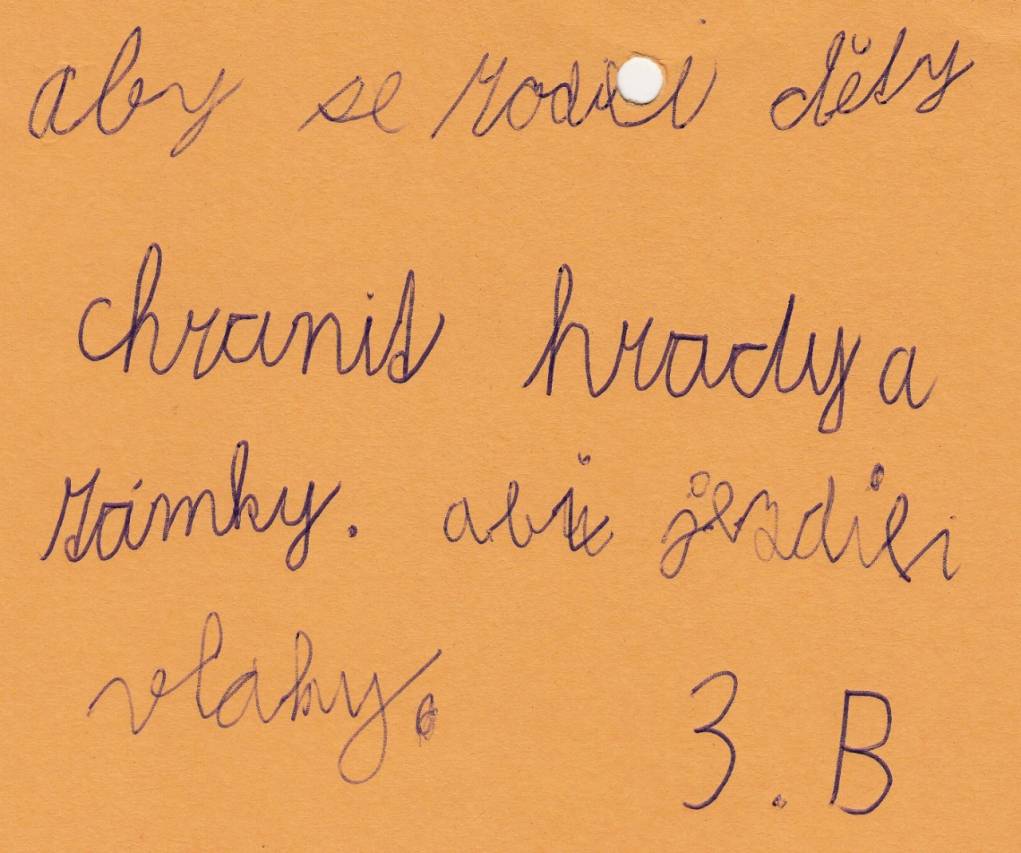 aby se rodili děty
chranit hrady a
zámky. jezdili
vlaky.
3.B